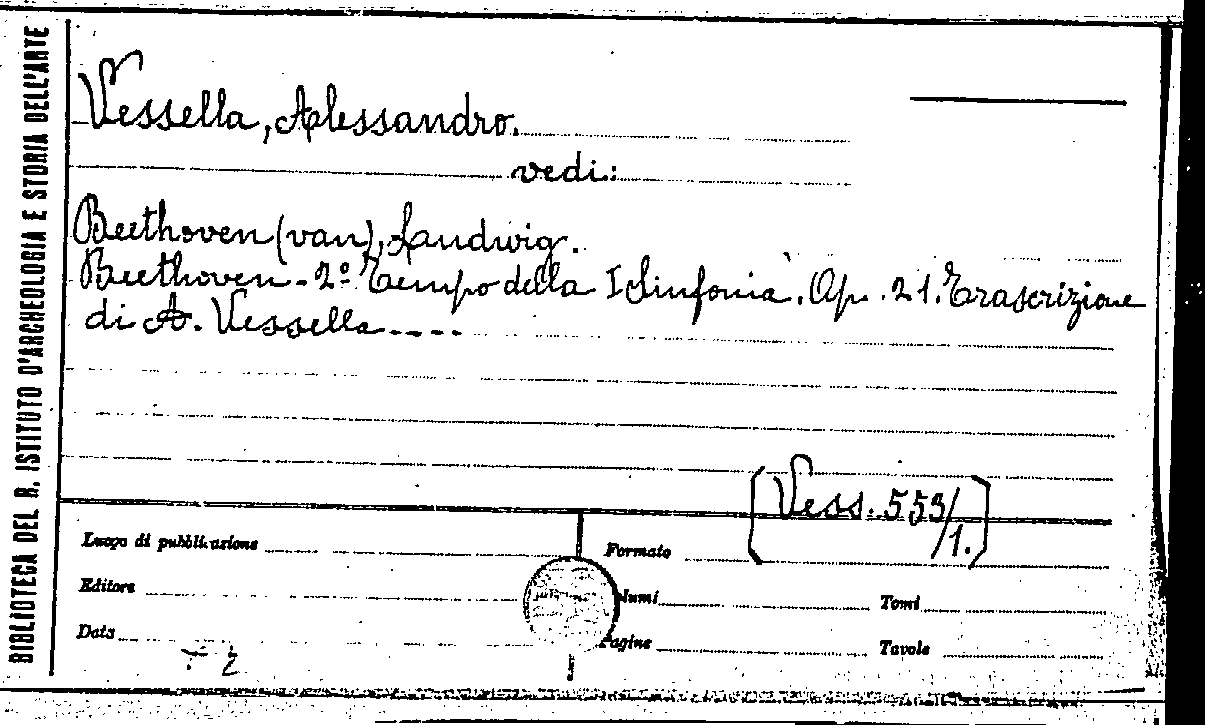 BIBLIOTECA DEL R. ISTITUTO D'ARCHEOLOGIA E STORIA DELL'ARTE
Vessella, Alessandro.
vedi:
Beethoven (van), Ludwig.
Beethoven - 2º Tempo della I Sinfonia. Op. 21. Trascrizione
di A. Vessella ----
[Vess. 553/1.]
Luogo di pubblicazione
Formato
Editore
Tomi
Data
Pagine
Tavole